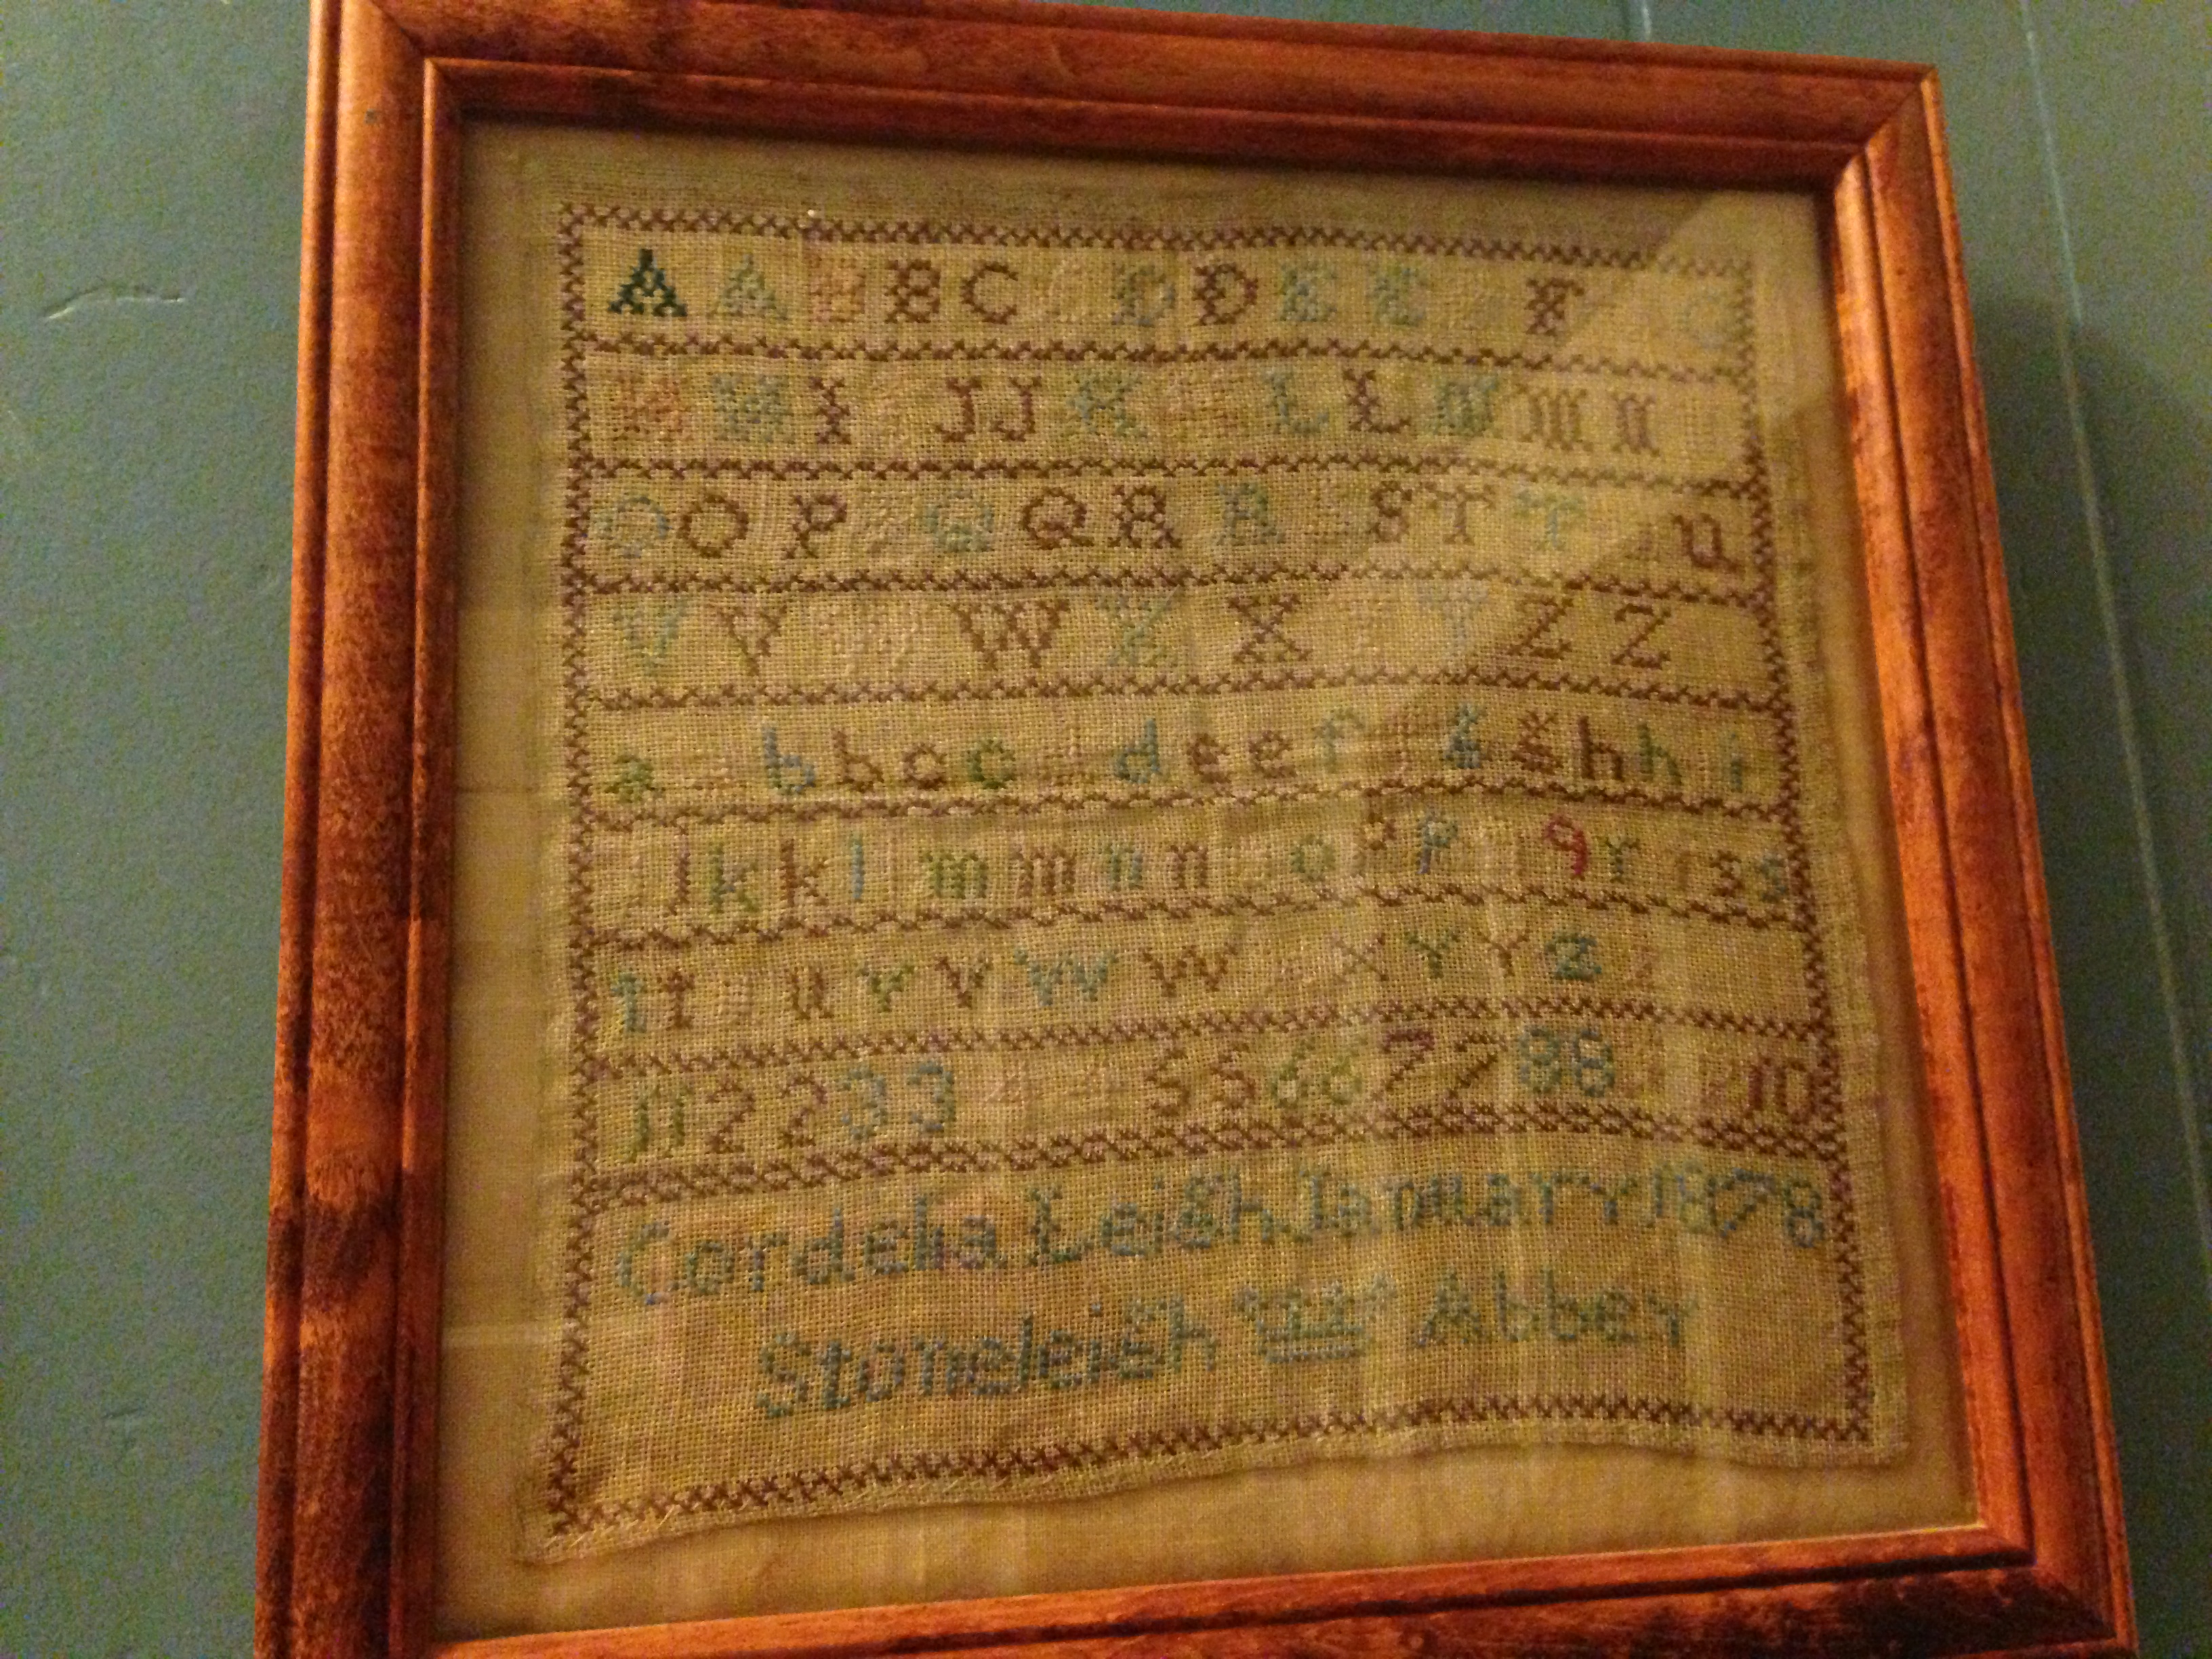 A A B B C D D E E F G
H H I J J K L L M M N
O O P Q Q R R S T T U
V V W W X X Y Z Z
a b b c c d e e f g g h h i
j k k l m m n n o p p q r s s
t t u v v w w x y y z
1 1 2 2 3 3 4 4 5 5 6 6 7 7 8 8 10
Cordelia Leigh January 1878
Stoneleigh Abbey